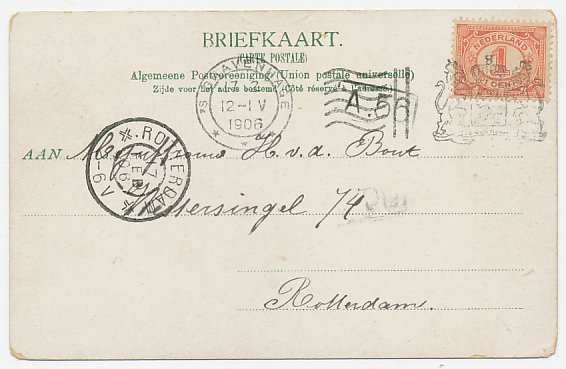 BRIEFKAART.
(CARTE POSTALE)
Algemeene Postvereeniging (Union postale universelle)
Zijde voor het adres bestemd (Côté réservé à l'adresse)
'S GRAVENHAGE
17 2
12-1 V
1906
A.56
NEDERLAND
1
CENT
ROTTERDAM
17 FEB 06
6 V
AAN Mejuffrouw H. v. d. Bout
singel 74
Rotterdam.